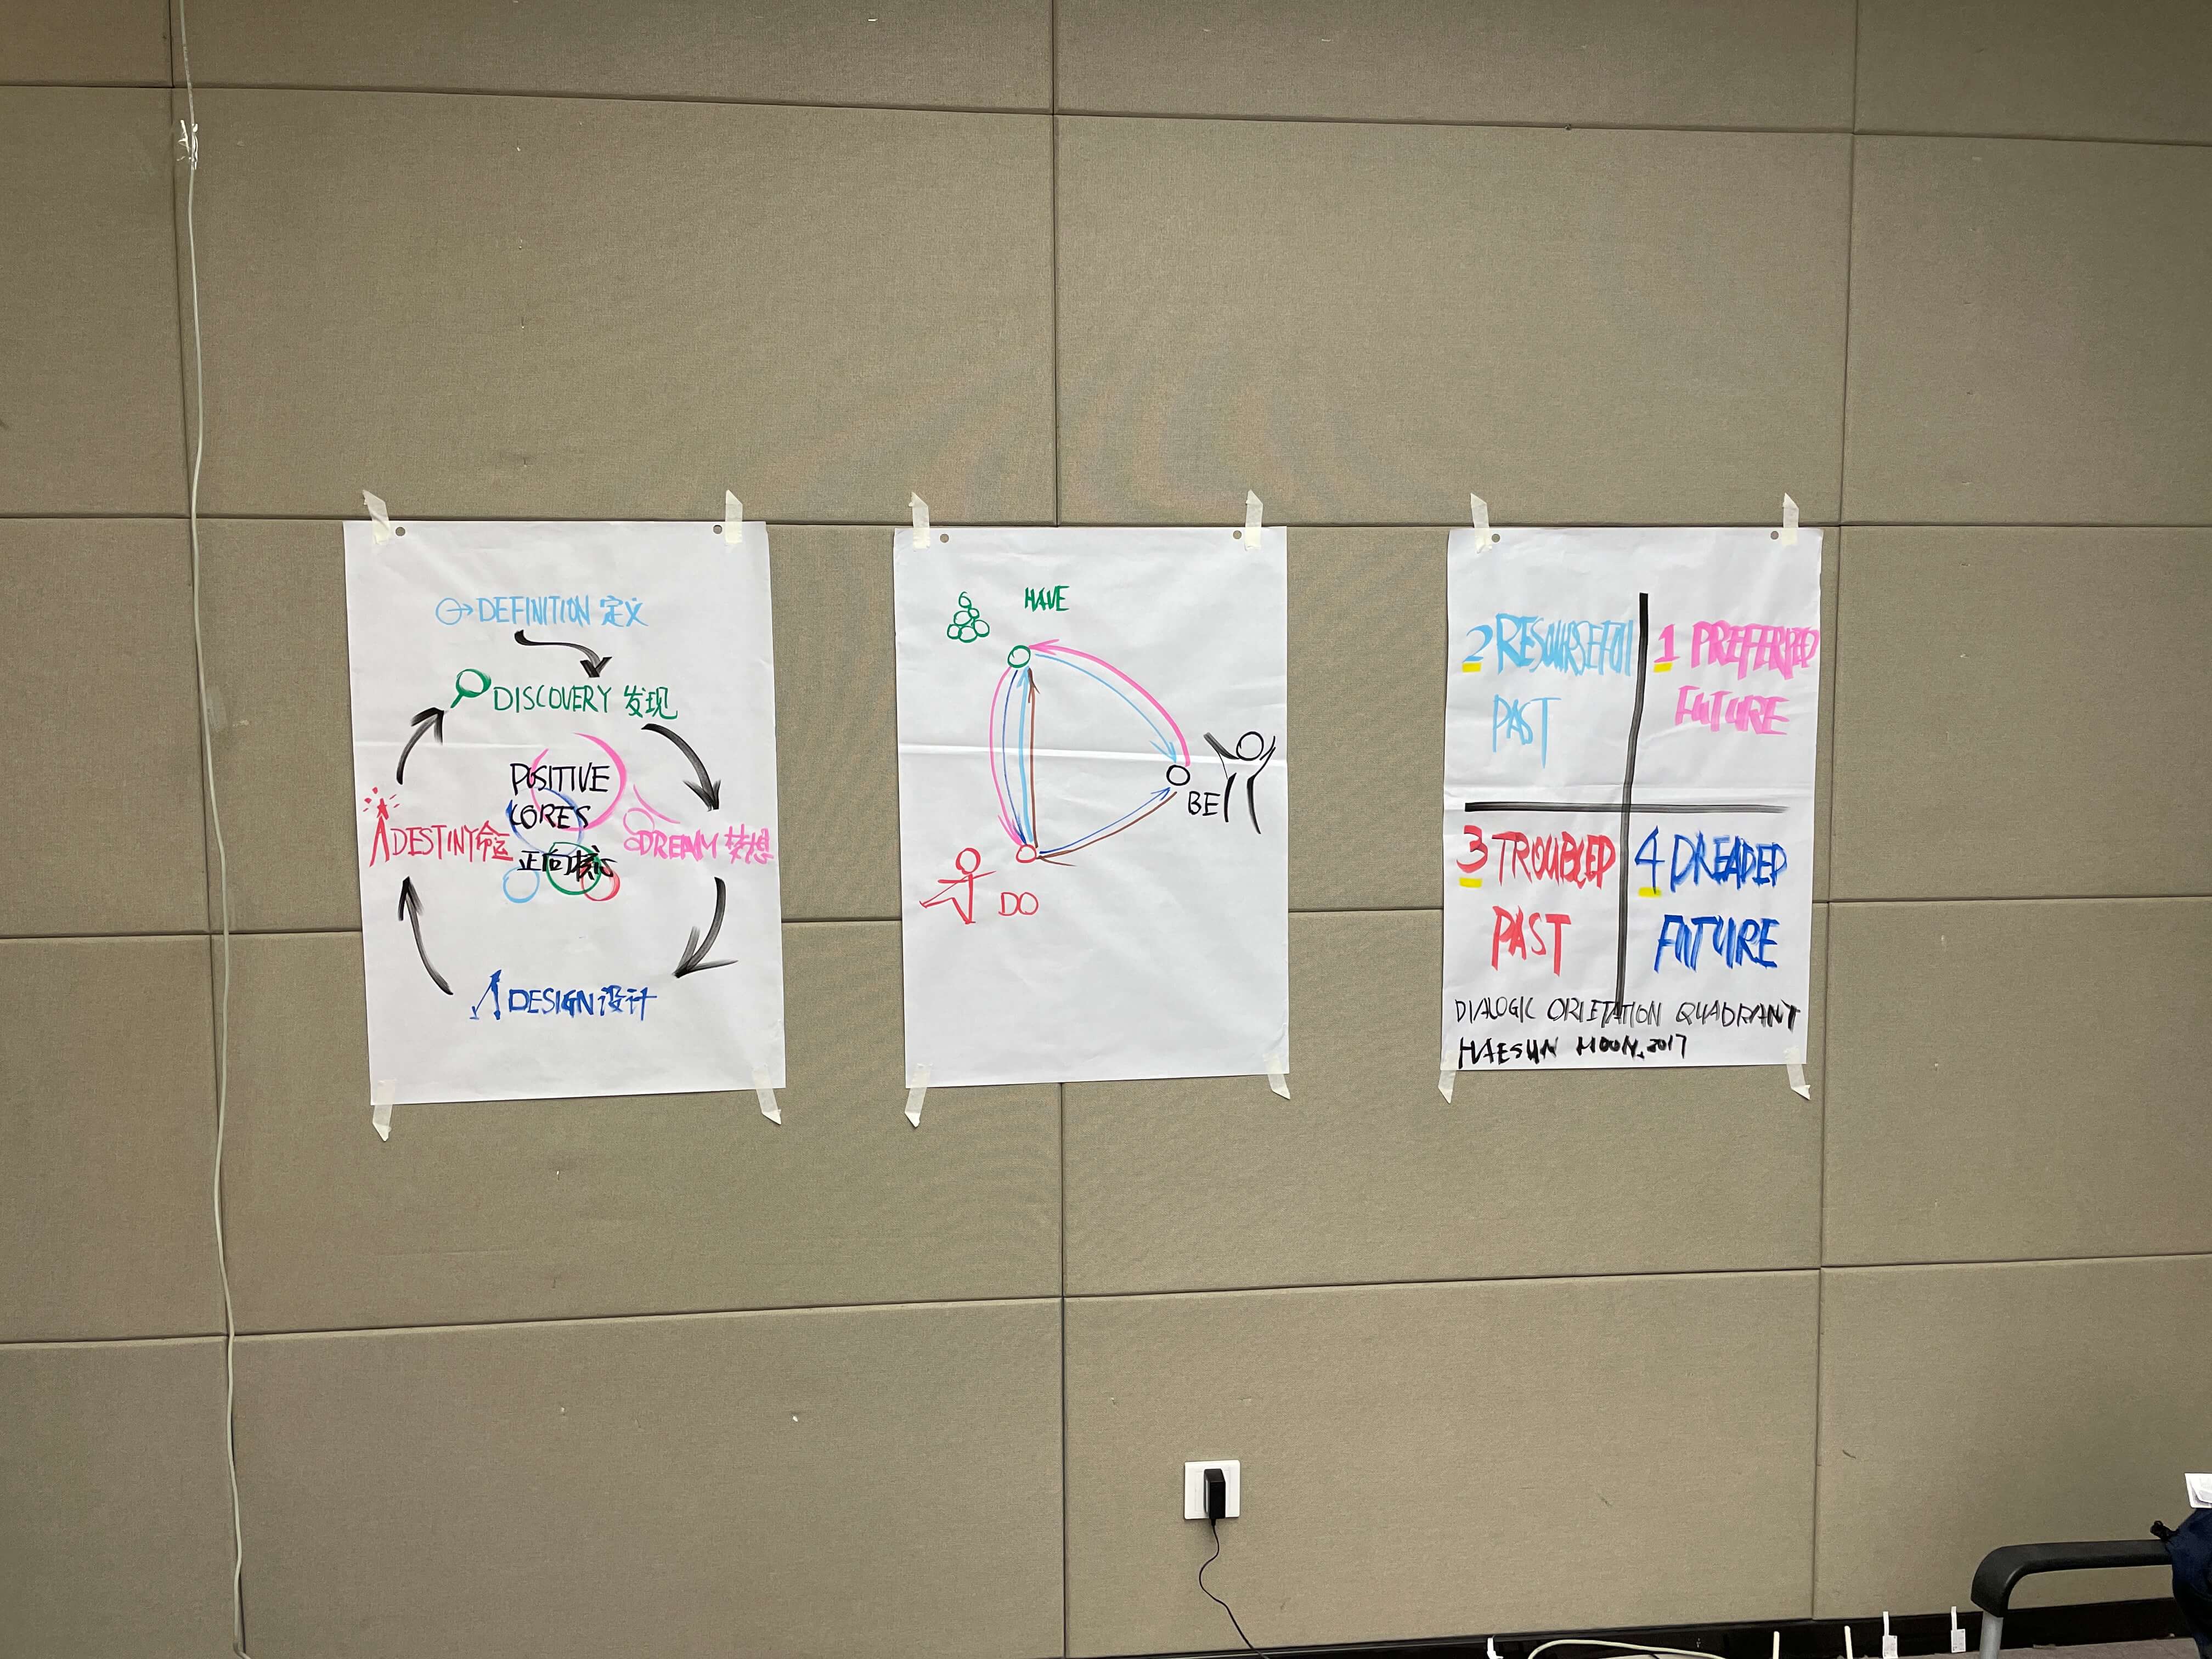 DEFINITION 定义
DISCOVERY 发现
POSITIVE
CORES
正向核心
DESTINY 命运
DREAM 梦想
DESIGN 设计
HAVE
BE
DO
2 RESOURSEFUL
PAST
1 PREFERRED
FUTURE
3 TROUBLED
PAST
4 DREADED
FUTURE
DIALOGIC ORIETATION QUADRANT
HAESUN MOON. 2017